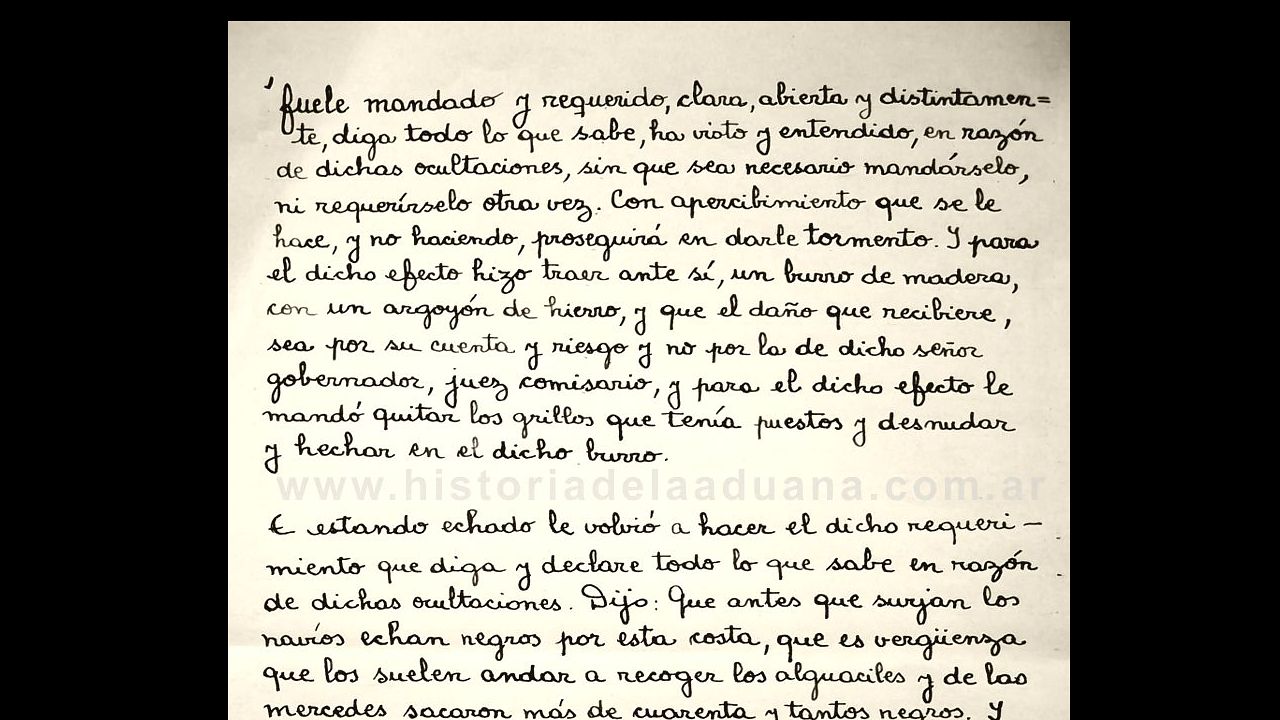 fuele mandado y requerido, clara, abierta y distintamen=
te, diga todo lo que sabe, ha visto y entendido, en razón
de dichas ocultaciones, sin que sea necesario mandárselo,
ni requerírselo otra vez. Con apercibimiento que se le
hace, y no haciendo, proseguirá en darle tormento. Y para
el dicho efecto hizo traer ante sí, un burro de madera,
con un argoyón de hierro, y que el daño que recibiere,
sea por su cuenta y riesgo y no por la de dicho señor
gobernador, juez comisario, y para el dicho efecto le
mandó quitar los grillos que tenía puestos y desnudar
y hechar en el dicho burro.
www.historiadelaaduana.com.ar
E estando echado le volvió a hacer el dicho requeri-
miento que diga y declare todo lo que sabe en razón
de dichas ocultaciones. Dijo: Que antes que surjan los
navíos echan negros por esta costa, que es vergüenza
que los suelen andar a recoger los alguaciles y de las
mercedes sacaron más de cuarenta y tantos negros. Y